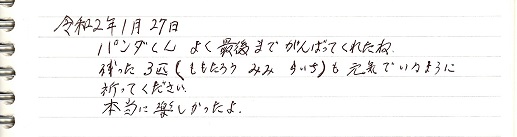 令和2年1月27日
パンダくん よく最後までがんばってくれたね.
残った3匹(ももたろう みみ らいち)も元気でいるように
祈ってください.
本当に楽しかったよ.